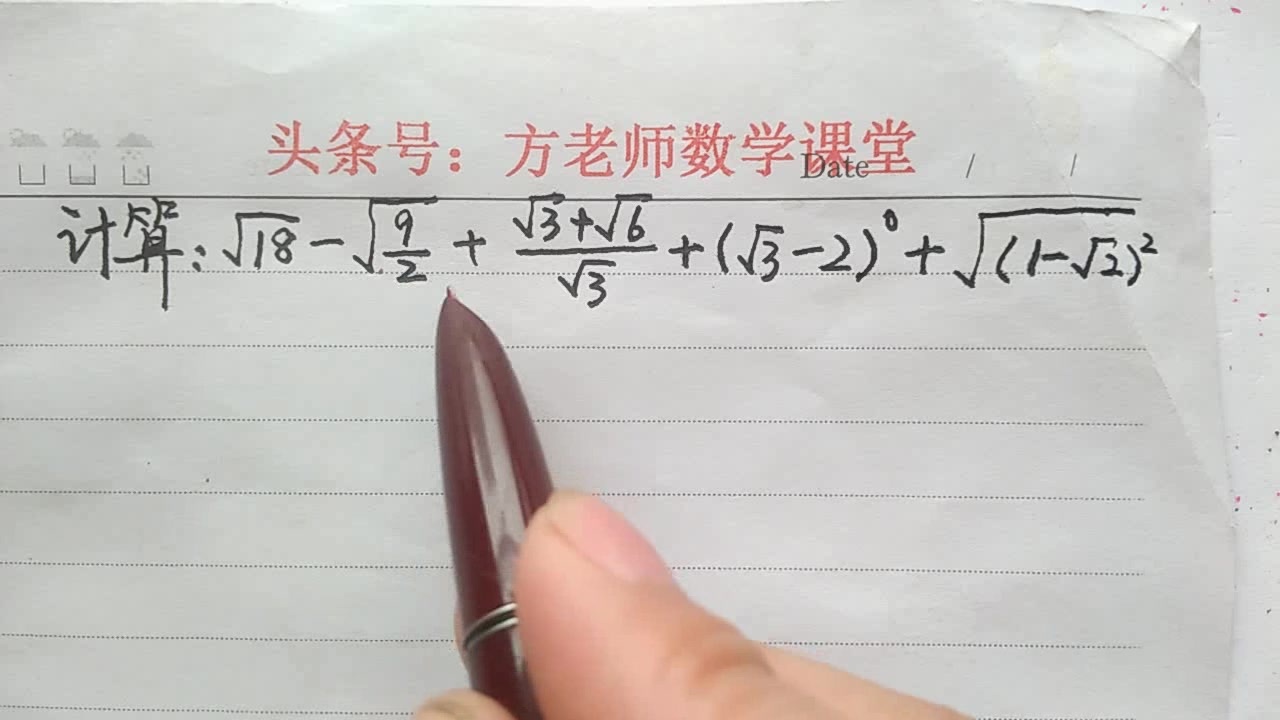 头条号：方老师数学课堂
Date / /
计算：√18 - √(9/2) + (√3+√6)/√3 + (√3-2)⁰ + √(1-√2)²